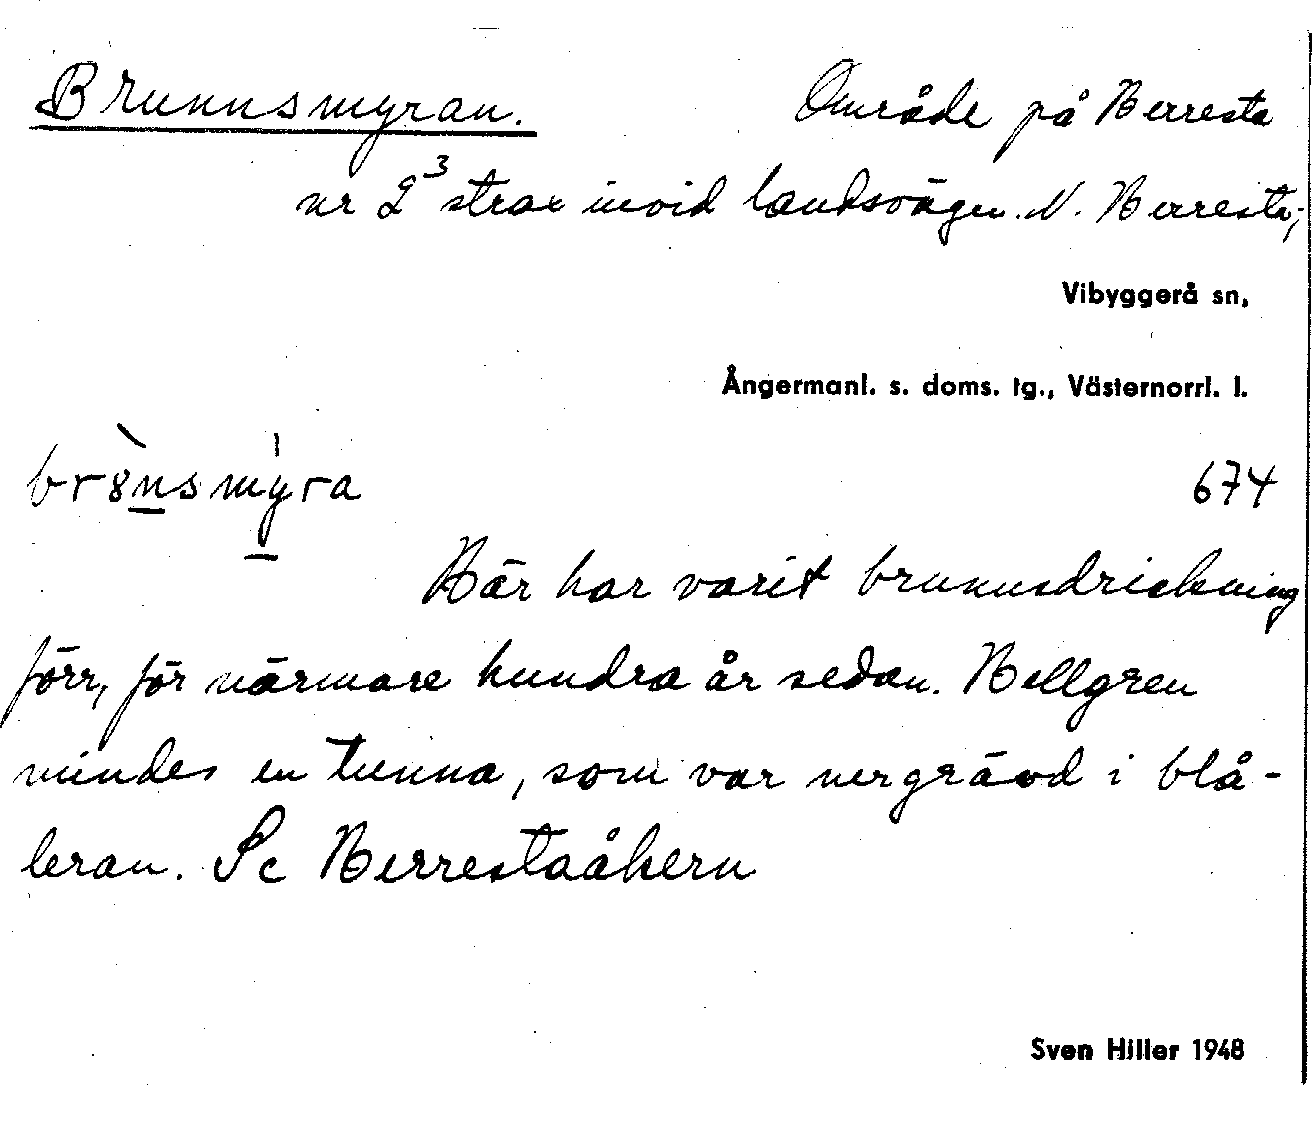 Brunnsmyran. Område på Herresta
nr 2³ strax invid landsvägen. N. Herresta;
Vibyggerå sn,
Ångermanl. s. doms. tg., Västernorrl. l.
br8̀nsmy̍ra 674
Här har varit brunnsdrickning
förr, för närmare hundra år sedan. Hellgren
mindes en tunna, som var nergrävd i blå-
leran. Se Herrestaåkern
Sven Hiller 1948